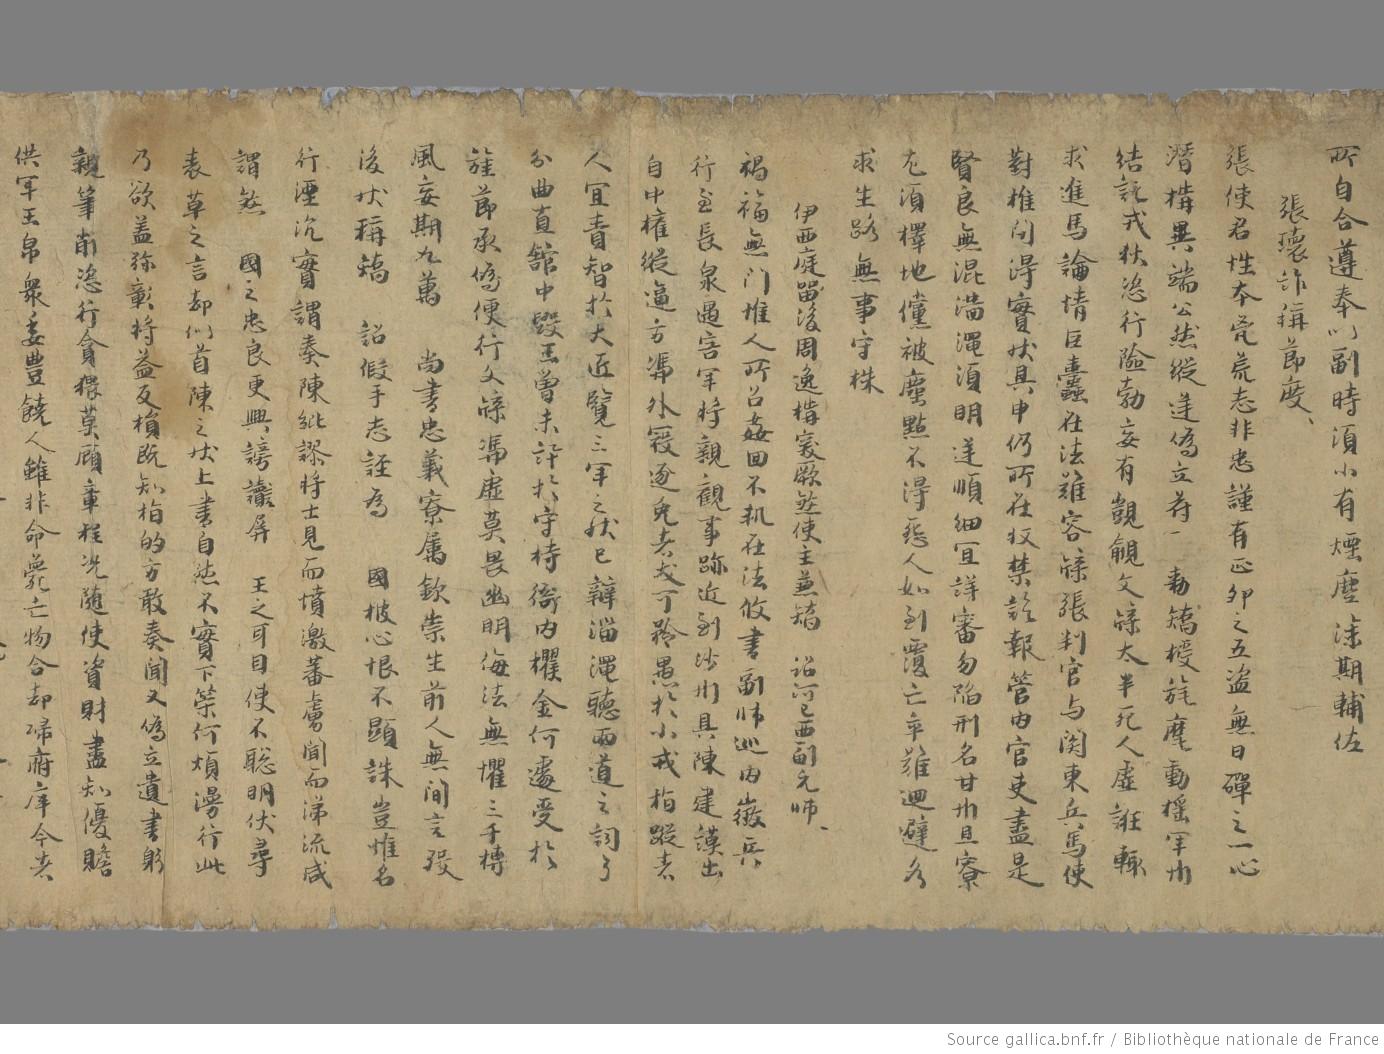 所自合遵奉以副時須小有煙塵深期輔佐
張瓌詐稱節度、
張使君性本荒荒志非忠謹有正卯之五盜無日磾之一心
潛構異端公然縱逆偽立符一動矯授旌麾動搖軍州
結託戎狄恣行險勃妄有覬覦文牒太半死人虛誑輒
求進馬論情巨蠹在法難容牒張判官与関東兵馬使
對推問得實狀具申仍所在収禁訖報管內官吏盡是
賢良無混淄澠須明逆順細宜詳審勿陷刑名甘州且寮
尤須擇地儻被塵點不得怨人如到覆亡卒難迴避各
求生路無事守株
伊西庭留後周逸構突厥煞使主兼矯 詔河已西副元帥、
禍福無門惟人所召姦回不軌在法攸書副帥巡內徵兵
行至長泉遇害軍將親觀事跡近到沙州具陳建謨出
自中權縱逼方憑外寇逐兔者犬可矜愚於小戎指蹤者
人宜責智於大匠覽三軍之狀已辯淄澠聽兩道之詞了
分曲直館中毀玉曾未訐於守持衙內攫金何遽受於
旌節承偽便行文牒憑虛莫畏幽明侮法無懼三千摶
風妄期九萬 尚書忠義寮屬欽崇生前人無間言歿
後狀稱矯 詔假手志誣為 國披心恨不顯誅豈惟名
行湮沉實謂奏陳紕謬將士見而憤激蕃虜聞而涕流咸
謂煞 國之忠良更興謗讟屏 王之耳目使不聡明伏尋
表草之言却似首陳之狀上書自然不實下策何煩漫行此
乃欲盖弥彰將益反損既知指的方敢奏聞又偽立遺書躬
親筆削恣行貪猥莫顧章程況隨使資財盡知優贍
供軍玉帛眾委豊饒人雖非命薨亡物合却歸府庫今者